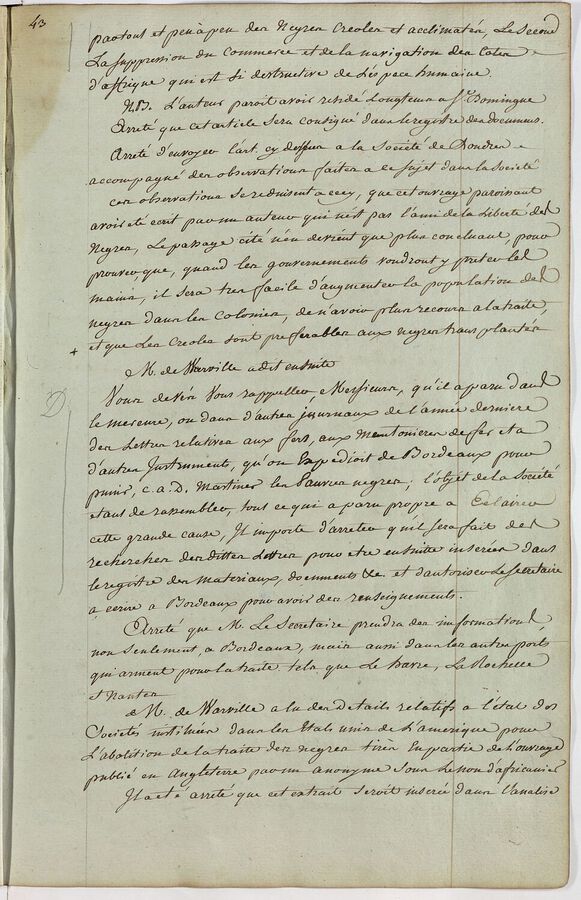 43
partout et peu à peu des Negres Creoles et acclimatés, Le second
La suppression du Commerce et de la navigation des Cotes
d'affrique qui est si destructive de L'espece humaine.
N.B. L'auteur paroit avoir residé Longtems a St Domingue
Arreté que cet article sera consigné dans le registre des documens.
Arreté d'envoyer l'art. cy dessus a la Societé de Londres
accompagné des observations faites a ce sujet dans la Societé
ces observations se reduisent a cecy, que cet ouvrage paroissant
avoir eté ecrit par un auteur qui n'est pas l'ami de la Liberté des
Negres, Le passage cité n'en devient que plus concluant, pour
prouver que, quand les gouvernements voudront y preter les
mains, il sera tres facile d'augmenter la population des
negres dans les Colonies, de n'avoir plus recours a la traite,
et que Les Creoles sont preferables aux negres transplantés
+
M. de Warville a dit ensuite
D
Vous devés Vous rappeller, Messieurs, qu'il a paru dans
le mercure, ou dans d'autres journaux de l'année derniere
des Lettres relatives aux fers, aux Mentonieres de fer et a
d'autres Instruments, qu'on Expedioit de Bordeaux pour
punir, c. a. D. Martiriser les Pauvres negres, l'objet de la Societé
etant de rassembler, tous ce qui a paru propre a Eclairer
cette grande cause, Il importe d'arreter qu'il sera fait des
recherches des dittes Lettres pour etre ensuite inserées dans
le registre des materiaux, documents &c. et d'autoriser Le secretaire
a ecrire a Bordeaux pour avoir des renseignements.
Arreté que M. Le Secretaire prendra des informations
non seulement a Bordeaux, mais aussi dans les autres ports
qui arment pour la traite tels que Le havre, La Rochelle
et Nantes
M. de Warville a lu des Details relatifs a l'etat des
Societés instituées dans les Etats unis de L'amerique pour
L'abolition de la traite des negres tirés En partie de l'ouvrage
publié en Angleterre par un anonyme sous Le nom d'africanus
Il a eté arreté que cet extrait seroit inseré dans l'analise